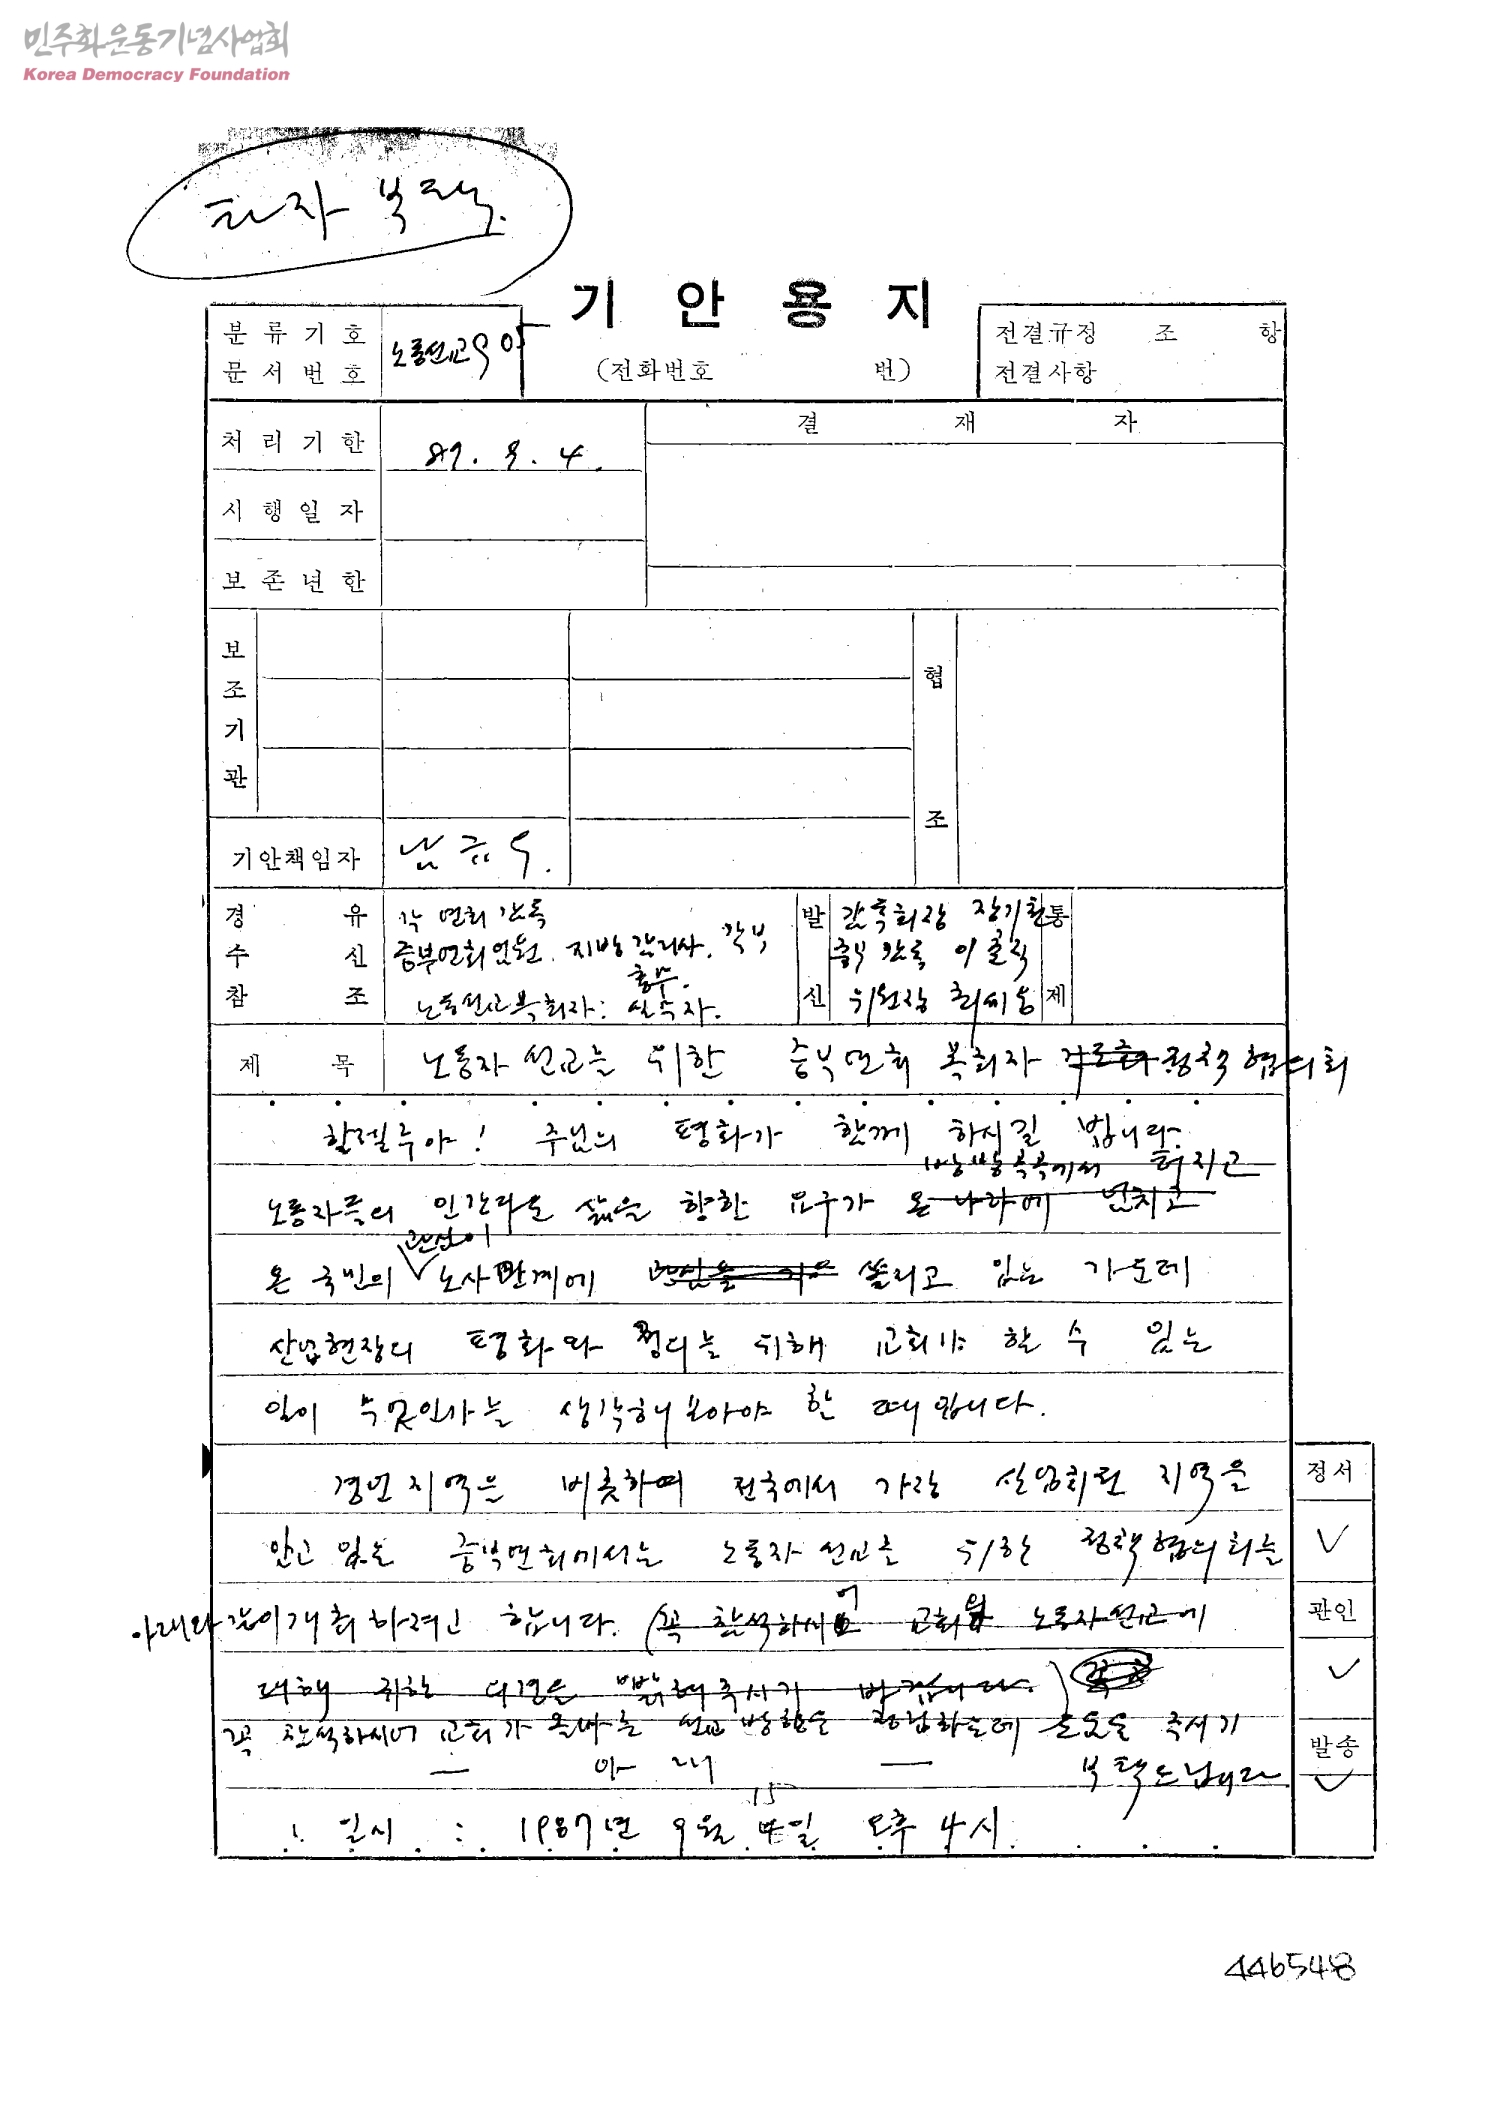 민주화운동기념사업회
Korea Democracy Foundation
타자 부탁.
기 안 용 지
분 류 기 호
문 서 번 호
노동선교
(전화번호 번)
전결규정 조 항
전결사항
처 리 기 한
87. 9. 4.
결 재 자
시 행 일 자
보 존 년 한
보 조 기 관
협 조
기안책임자
남규우.
경 유
각 연회 감독
수 신
중부연회 임원. 지방 감리사. 각부 총무.
참 조
노동선교목회자: 실무자.
발 신
중부 감독
위원장
통 제
제 목
노동자 선교를 위한 중부연회 목회자 정책협의회
할렐루야! 주님의 평화가 함께 하시길 빕니다.
방방곡곡에서 터지고
노동자들의 인간다운 삶을 향한 요구가 온 나라에 넘치고
관심이
온 국민의 노사관계에 쏠리고 있는 가운데
산업현장의 평화와 정의를 위해 교회가 할 수 있는
일이 무엇인가를 생각해 보아야 할 때입니다.
경인지역을 비롯하여 전국에서 가장 산업화된 지역을
안고 있는 중부연회에서는 노동자 선교를 위한 정책협의회를
아래와 같이 개최하려고 합니다. (꼭 참석하시어 교회와 노동자선교에
대해 귀한 의견을 밝혀주시기 바랍니다.)
꼭 참석하시어 교회가 올바른 선교방향을 정립하는데 도움을 주시기
부탁드립니다
— 아 래 —
15
1. 일시 : 1987년 9월 일 오후 4시.
정서
관인
발송
446548